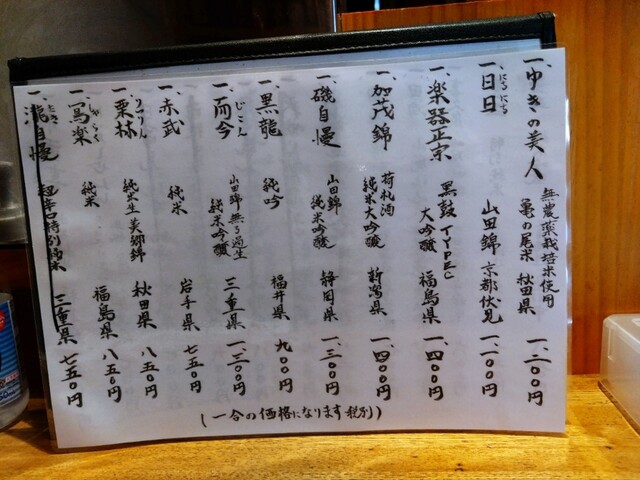 一、ゆきの美人 無農薬栽培米使用 亀の尾米 秋田県 一、二〇〇円
一、日日 にちにち 山田錦 京都伏見 一、一〇〇円
一、楽器正宗 黒鼓TYPEC 大吟醸 福島県 一、四〇〇円
一、加茂錦 荷札酒 純米大吟醸 新潟県 一、四〇〇円
一、磯自慢 山田錦 純米吟醸 静岡県 一、三〇〇円
一、黒龍 純吟 福井県 九〇〇円
一、而今 じこん 山田錦無ろ過生 純米大吟醸 三重県 一、三〇〇円
一、赤武 純米 岩手県 七五〇円
一、栗林 りつりん 純米生美郷錦 秋田県 八五〇円
一、寫楽 しゃらく 純米 福島県 八五〇円
一、瀧自慢 たき 超辛口特別純米 三重県 七五〇円
(一合の価格になります税別)